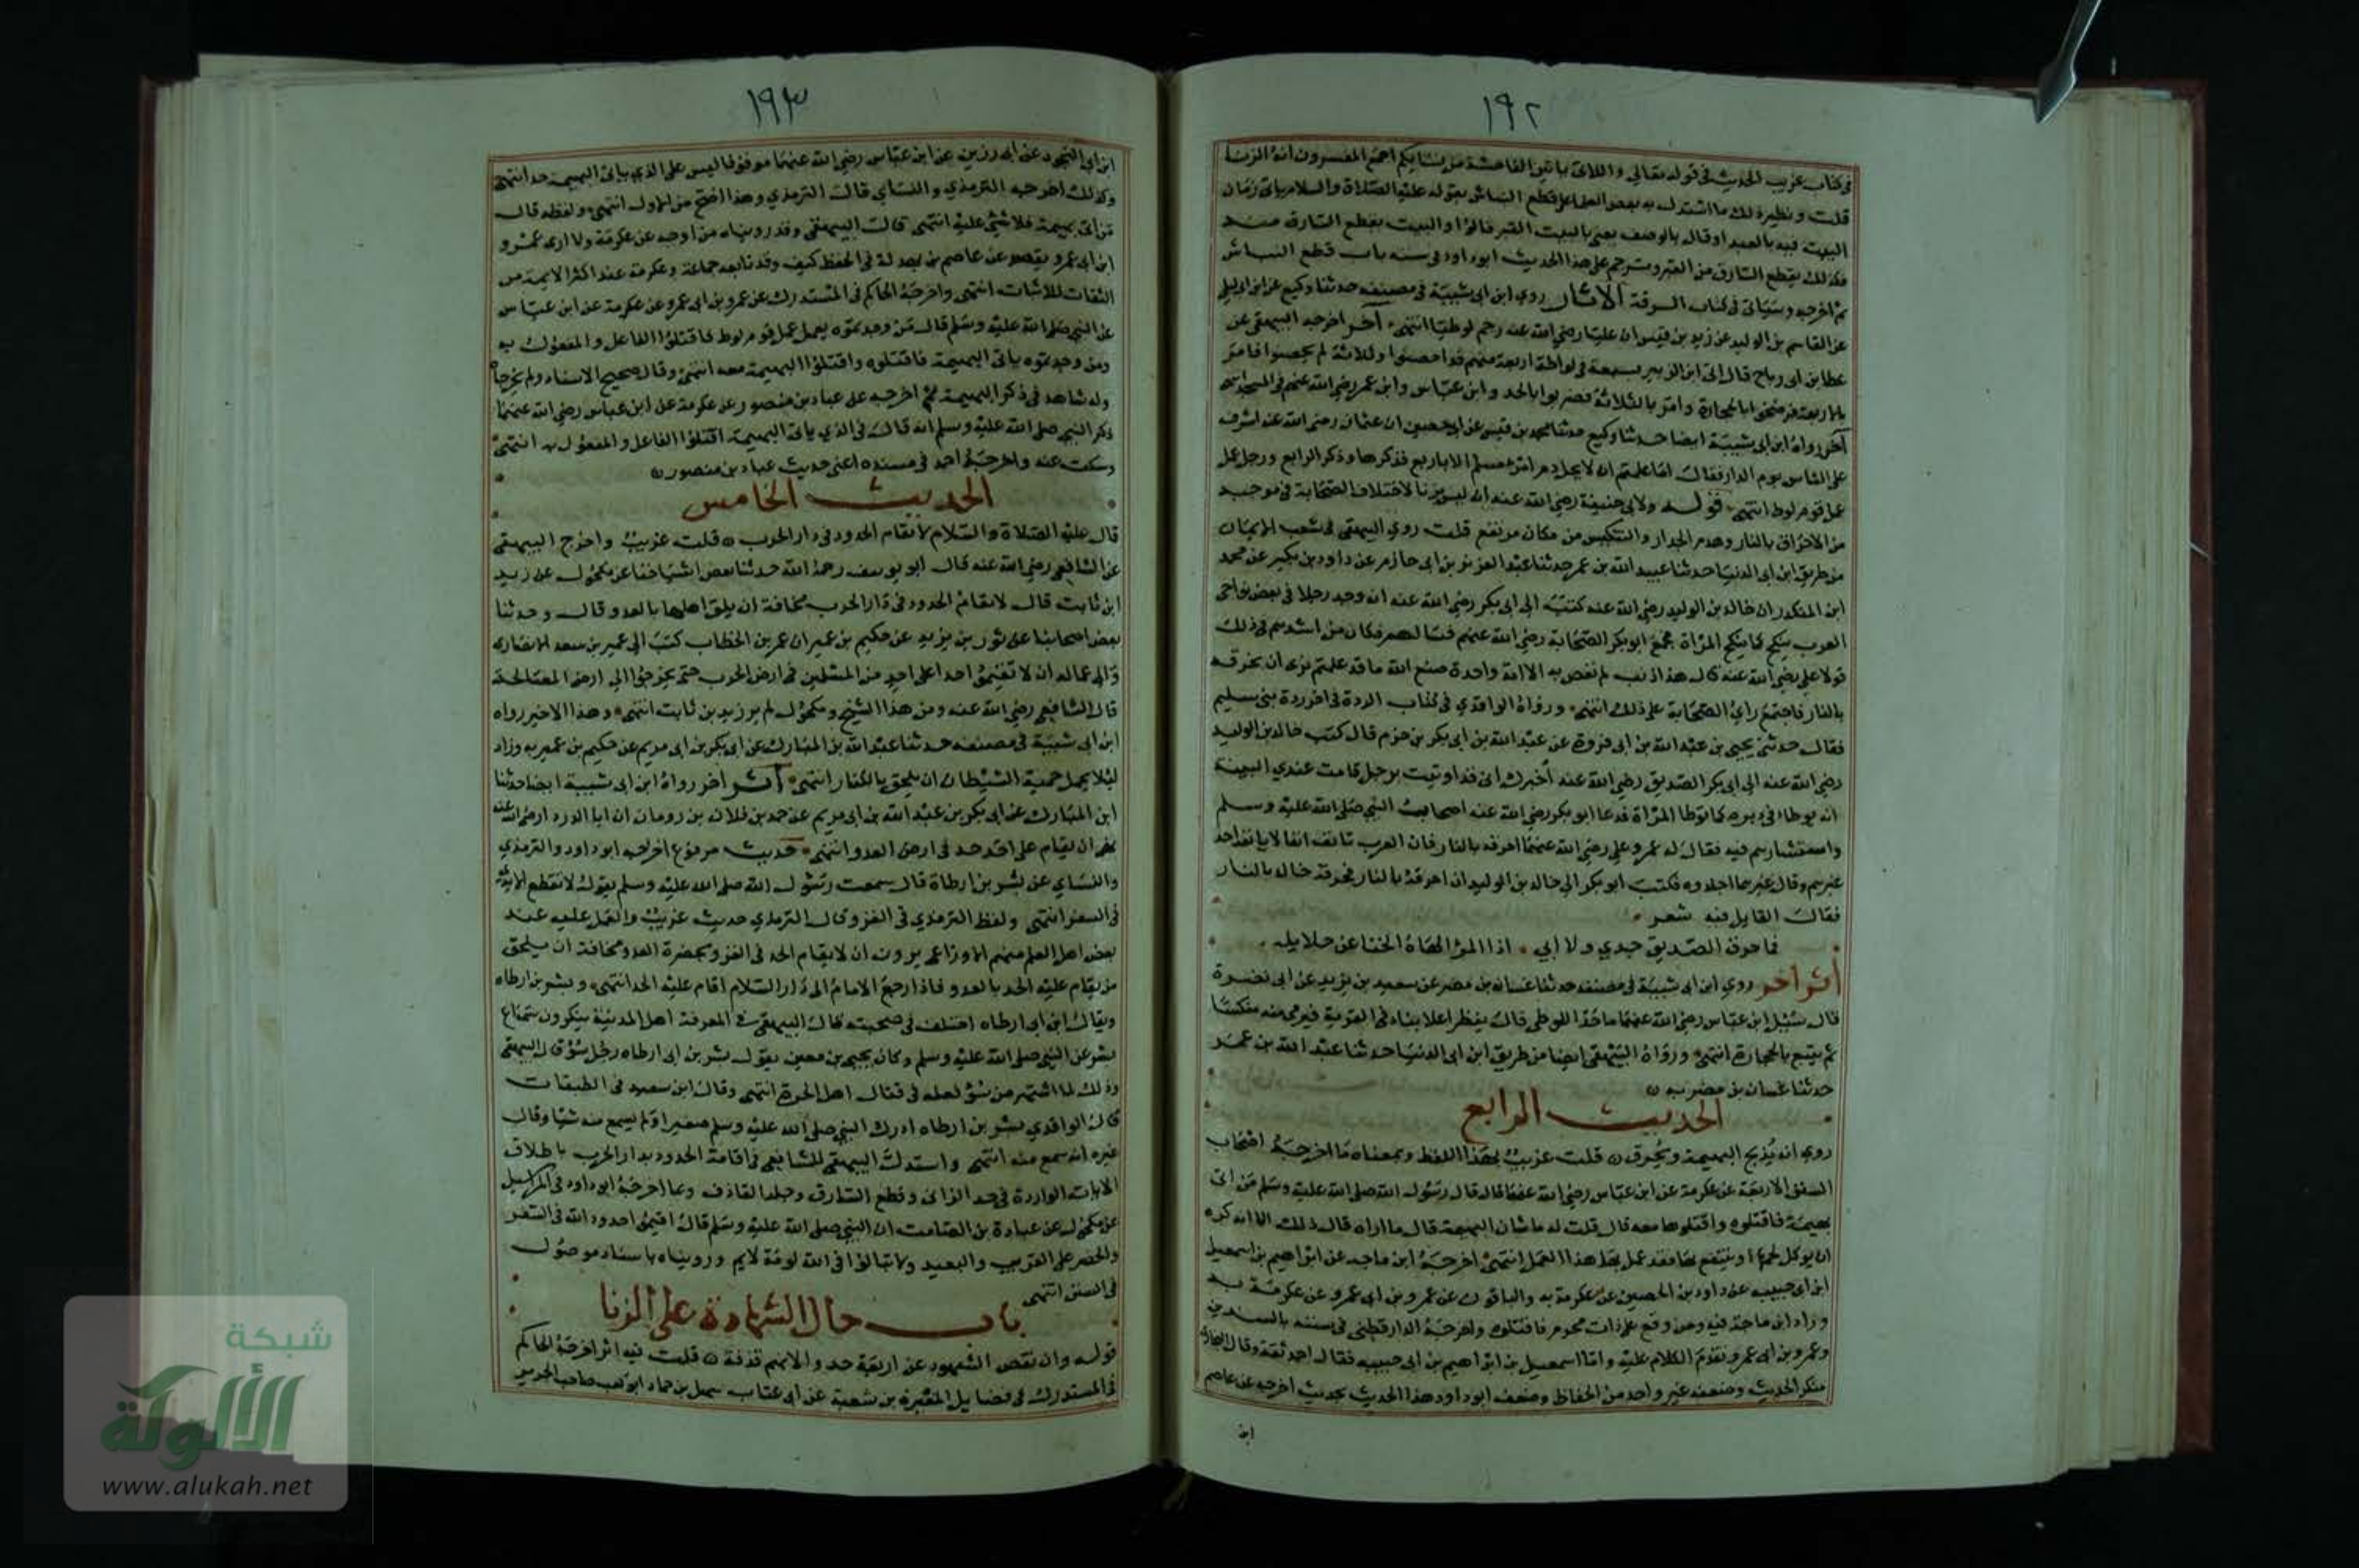 ١٩٢
في كتاب غريب الحديث في قوله تعالى واللاتي ياتين الفاحشة من نسايكم اجمع المفسرون انه الزنا
قلت ونظير ذلك ما استدل به بعض العلماء على قطع النباش بقوله عليه الصلاة والسلام ياتي زمان
البيت فيه بالعبد او قال بالوصف يعني بالبيت القبر قالوا والبيت يقطع السارق منه
فكذلك يقطع السارق من القبر وترجم على هذا الحديث ابو داود في سننه باب قطع النباش
ثم اخرجه وسياتي في كتاب السرقة الاثار روي ابن ابي شيبة في مصنفه حدثنا وكيع عن ابن ابي ليلي
عن القاسم بن الوليد عن زيد بن قيس ان عليا رضي الله عنه رجم لوطيا انتهى اخر اخرجه البيهقي عن
عطا بن ابي رباح قال اتى ابن الزبير بسبعة في لواطة اربعة منهم قد احصنوا وثلاثة لم يحصنوا فامر
بالاربعة فرضخوا بالحجارة وامر بالثلاثة فضربوا بالحد وابن عباس وابن عمر رضي الله عنهم في المسجد انتهى
آخر رواه ابن ابي شيبة ايضا حدثنا وكيع حدثنا محمد بن قيس عن ابي حصين ان عثمان رضي الله عنه اشرف
على الناس يوم الدار فقال اما علمتم انه لا يحل دم امرء مسلم الا باربع فذكرها وذكر الرابع ورجل عمل
عمل قوم لوط انتهى قوله ولابي حنيفة رضي الله عنه انه ليس بزنا لاختلاف الصحابة في موجبه
من الاحراق بالنار وهدم الجدار والتنكيس من مكان مرتفع قلت روي البيهقي في شعب الايمان
من طريق ابن ابي الدنيا حدثنا عبيد الله بن عمر حدثنا عبد العزيز بن ابي حازم عن داود بن بكير عن محمد
ابن المنكدر ان خالد بن الوليد رضي الله عنه كتب الى ابي بكر رضي الله عنه انه وجد رجلا في بعض نواحي
العرب ينكح كما ينكح المراة فجمع ابو بكر الصحابة رضي الله عنهم فسالهم فكان من اشدهم في ذلك
قولا علي رضي الله عنه قال هذا ذنب لم تعص به الا امة واحدة صنع الله ما قد علمتم نرى ان نحرقه
بالنار فاجتمع راي الصحابة على ذلك انتهى ورواه الواقدي في كتاب الردة في اخر ردة بني سليم
فقال حدثني يحيى بن عبد الله بن ابي فروة عن عبد الله بن ابي بكر بن حزم قال كتب خالد بن الوليد
رضي الله عنه الى ابي بكر الصديق رضي الله عنه اخبرك اني قد اوتيت برجل قامت عندي البينة
انه يوطا في دبره كما توطا المراة فدعا ابو بكر رضي الله عنه اصحاب النبي صلى الله عليه وسلم
واستشارهم فيه فقال له عمر وعلي رضي الله عنهما احرقه بالنار فان العرب تانف انفا لا يانفه احد
غيرهم وقال غيرهما اجلدوه فكتب ابو بكر الى خالد بن الوليد ان احرقه بالنار فحرقه خالد بالنار
فقال القايل فيه شعر
فما حرق الصديق جدي ولا ابي اذا المرء الهاه الخنا عن حلايله
أثر اخر روي ابن ابي شيبة في مصنفه حدثنا غسان بن مضر عن سعيد بن يزيد عن ابي نضرة
قال سيل ابن عباس رضي الله عنهما ما حد اللوطي قال ينظر اعلا بناء في القرية فيرمى منه منكسا
ثم يتبع بالحجارة انتهى ورواه البيهقي ايضا من طريق ابن ابي الدنيا حدثنا عبد الله بن عمر
حدثنا غسان بن مضر به
الحديث الرابع
روي انه تذبح البهيمة وتحرق قلت غريب بهذا اللفظ وبمعناه ما اخرجه اصحاب
السنن الاربعة عن عكرمة عن ابن عباس رضي الله عنهما قال قال رسول الله صلى الله عليه وسلم من اتى
بهيمة فاقتلوه واقتلوها معه قال قلت له ما شان البهيمة قال ما اراه قال ذلك الا انه كره
ان يوكل لحمها او ينتفع بها وقد عمل بها هذا العمل انتهى اخرجه ابن ماجه عن ابراهيم بن اسمعيل
ابن ابي حبيبة عن داود بن الحصين عن عكرمة به والباقون عن عمرو بن ابي عمرو عن عكرمة به
وزاد ابن ماجة فيه ومن وقع على ذات محرم فاقتلوه واخرجه الدارقطني في سننه بالسندين
وعمرو بن ابي عمرو تقدم الكلام عليه واما اسمعيل بن ابراهيم بن ابي حبيبة فقال احمد ثقة وقال البخاري
منكر الحديث وضعفه غير واحد من الحفاظ وضعف ابو داود هذا الحديث بحديث اخرجه عن عاصم
ابن
١٩٣
ابن ابي النجود عن ابي رزين عن ابن عباس رضي الله عنهما موقوفا ليس على الذي ياتي البهيمة حد انتهى
وكذلك اخرجه الترمذي والنساي قال الترمذي وهذا اصح من الاول انتهى ولفظه قال
من اتى بهيمة فلا شي عليه انتهى قال البيهقي وقد رويناه من اوجه عن عكرمة ولا ارى عمرو
ابن ابي عمرو يقصر عن عاصم بن بهدلة في الحفظ كيف وقد تابعه جماعة وعكرمة عند اكثر الايمة من
الثقات الاثبات انتهى واخرجه الحاكم في المستدرك عن عمرو بن ابي عمرو عن عكرمة عن ابن عباس
عن النبي صلى الله عليه وسلم قال من وجدتموه يعمل عمل قوم لوط فاقتلوا الفاعل والمفعول به
ومن وجدتموه ياتي البهيمة فاقتلوه واقتلوا البهيمة معه انتهى وقال صحيح الاسناد ولم يخرجاه
وله شاهد في ذكر البهيمة ثم اخرجه عن عباد بن منصور عن عكرمة عن ابن عباس رضي الله عنهما
ذكر النبي صلى الله عليه وسلم انه قال في الذي ياتي البهيمة اقتلوا الفاعل والمفعول به انتهى
وسكت عنه واخرجه احمد في مسنده اعني حديث عباد بن منصور
الحديث الخامس
قال عليه الصلاة والسلام لا تقام الحدود في دار الحرب قلت غريب واخرج البيهقي
عن الشافعي رضي الله عنه قال قال ابو يوسف رحمه الله حدثنا بعض اشياخنا عن مكحول عن زيد
ابن ثابت قال لا تقام الحدود في دار الحرب مخافة ان يلحق اهلها بالعدو قال وحدثنا
بعض اصحابنا عن ثور بن يزيد عن حكيم بن عمير ان عمر بن الخطاب كتب الى عمير بن سعد الانصاري
والى عماله ان لا تقيموا حدا على احد من المسلمين في ارض الحرب حتى يخرجوا الى ارض المصالحة
قال الشافعي رضي الله عنه ومن هذا الشيخ ومكحول لم ير زيد بن ثابت انتهى وهذا الاخير رواه
ابن ابي شيبة في مصنفه حدثنا عبد الله بن المبارك عن ابي بكر بن ابي مريم عن حكيم بن عمير به وزاد
ليلا يحمل حمية الشيطان ان يلحق بالكفار انتهى أثر اخر رواه ابن ابي شيبة ايضا حدثنا
ابن المبارك عن ابي بكر بن عبد الله بن ابي مريم عن حميد بن فلان بن رومان ان ابا الدرداء رضي الله عنه
نهى ان يقام على احد حد في ارض العدو انتهى حديث مرفوع اخرجه ابو داود والترمذي
والنساي عن بشر بن ارطاة قال سمعت رسول الله صلى الله عليه وسلم يقول لا تقطع الايدي
في السفر انتهى ولفظ الترمذي في الغزو قال الترمذي حديث غريب والعمل عليه عند
بعض اهل العلم منهم الاوزاعي يرون ان لا يقام الحد في الغزو بحضرة العدو مخافة ان يلحق
من يقام عليه الحد بالعدو فاذا رجع الامام الى دار السلام اقام عليه الحد انتهى وبشر بن ارطاه
ويقال ابن ابي ارطاه اختلف في صحبته قال البيهقي في المعرفة اهل المدينة ينكرون سماع
بشر عن النبي صلى الله عليه وسلم وكان يحيى بن معين يقول بشر بن ابي ارطاه رجل سوء قال البيهقي
وذلك لما اشتهر من سوء فعله في قتال اهل الحرة انتهى وقال ابن سعد في الطبقات
قال الواقدي بشر بن ارطاه ادرك النبي صلى الله عليه وسلم صغيرا ولم يسمع منه شيا وقال
غيره انه سمع منه انتهى واستدل البيهقي للشافعي في اقامة الحدود بدار الحرب باطلاق
الايات الواردة في حد الزاني وقطع السارق وجلد القاذف وبما اخرجه ابو داود في المراسيل
عن مكحول عن عبادة بن الصامت ان النبي صلى الله عليه وسلم قال اقيموا حدود الله في السفر
والحضر على القريب والبعيد ولا تبالوا في الله لومة لايم ورويناه باسناد موصول
في السنن انتهى
باب حال الشهادة على الزنا
قوله وان نقص الشهود عن اربعة حدوا لانهم قذفة قلت فيه اثر اخرجه الحاكم
في المستدرك في فضايل المغيرة بن شعبة عن ابي عتاب سهل بن حماد ابو كعب صاحب الحرير
شبكة
الألوكة
www.alukah.net